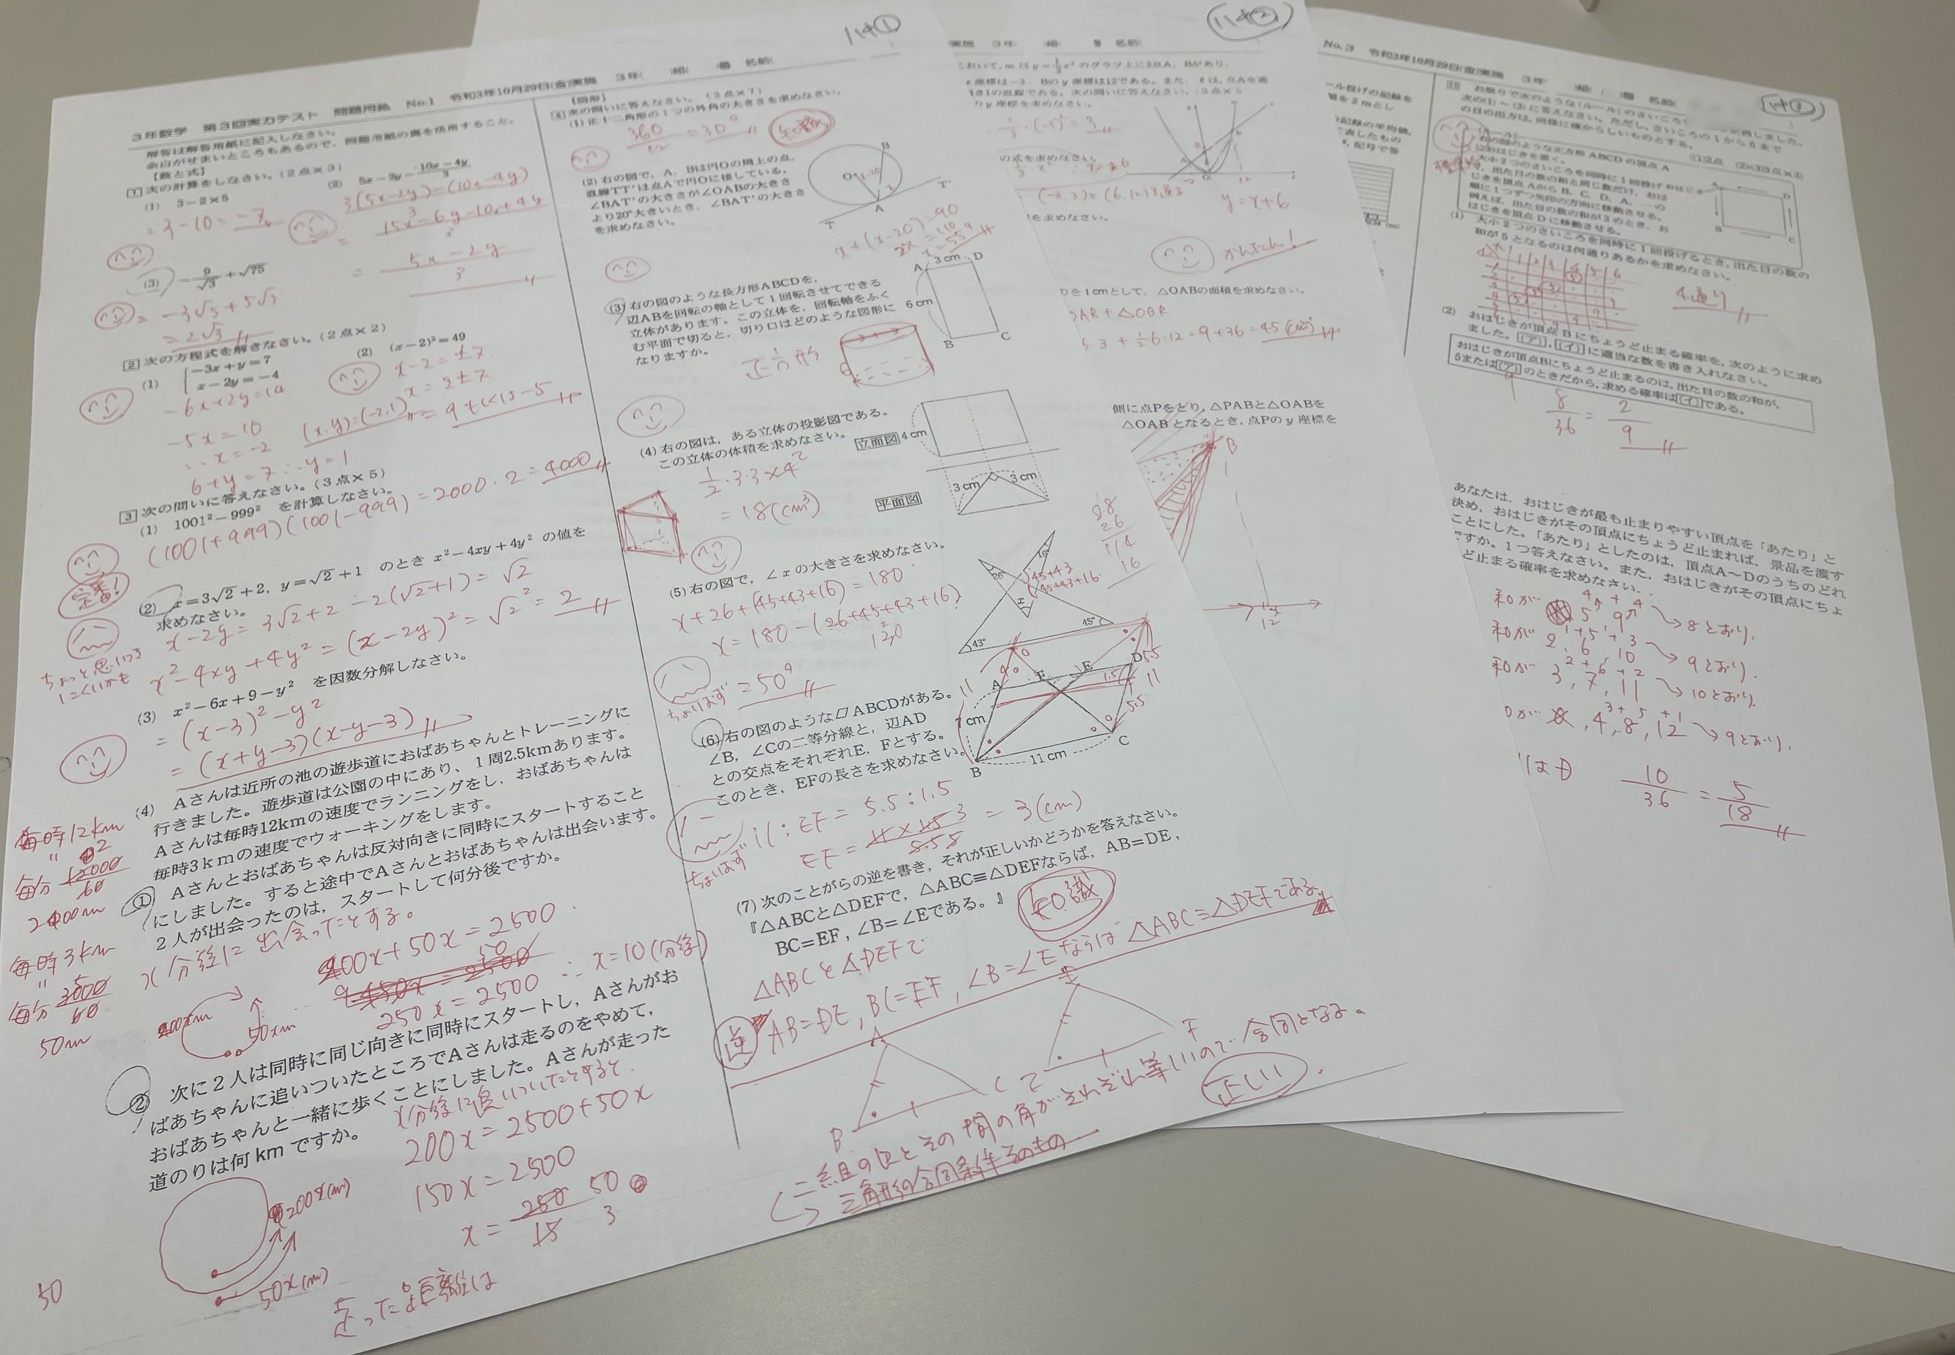 11中①
3年数学 第3回実力テスト 問題用紙 No.1 令和3年10月29日(金)実施 3年( )組( )番 名前(
解答は解答用紙に記入しなさい。
余白がせまいところもあるので、問題用紙の裏を活用すること。
【数と式】
1 次の計算をしなさい。(2点×3)
(1) 3−2×5
= 3−10 = −7
(2) 5x−2y−(10x−4y)/3
3(5x−2y)−(10x−4y)
3
= 15x−6y−10x+4y
3
= 5x−2y
3
(3) −9/√3+√75
= −3√3+5√3
= 2√3
2 次の方程式を解きなさい。(2点×2)
(1) −3x+y=7
x−2y=−4
−6x+2y=14
−5x=10
∴x=−2
6+y=7 ∴y=1
(x,y)=(−2,1)
(2) (x−2)²=49
x−2=±7
x=2±7
=9または−5
3 次の問いに答えなさい。(3点×5)
(1) 1001²−999² を計算しなさい。
(1001+999)(1001−999)=2000・2=4000
定番!
(2) x=3√2+2, y=√2+1 のとき x²−4xy+4y² の値を
求めなさい。
x−2y= 3√2+2−2(√2+1)=√2
x²−4xy+4y²=(x−2y)²=√2²=2
ちょっと思いつき
にくいかも
(3) x²−6x+9−y² を因数分解しなさい。
=(x−3)²−y²
=(x+y−3)(x−y−3)
(4) Aさんは近所の池の遊歩道におばあちゃんとトレーニングに
行きました。遊歩道は公園の中にあり、1周2.5kmあります。
Aさんは毎時12kmの速度でランニングをし、おばあちゃんは
毎時3kmの速度でウォーキングをします。
① Aさんとおばあちゃんは反対向きに同時にスタートすること
にしました。すると途中でAさんとおばあちゃんは出会います。
2人が出会ったのは、スタートして何分後ですか。
毎時12km
毎分 12000
60
200m
毎時3km
毎分 3000
60
50m
x分後に出会ったとする。
200x+50x=2500
250x=2500 ∴x=10(分後)
200xm
50xm
② 次に2人は同時に同じ向きに同時にスタートし、Aさんがお
ばあちゃんに追いついたところでAさんは走るのをやめて、
おばあちゃんと一緒に歩くことにしました。Aさんが走った
道のりは何kmですか。
x分後に追いついたとすると
200x=2500+50x
150x=2500
x= 250 50
15 3
200x(m)
50x(m)
50
走った距離は
【図形】
4 次の問いに答えなさい。(3点×7)
(1) 正十二角形の1つの外角の大きさを求めなさい。
360
12
=30° 知識
(2) 右の図で、A、Bは円Oの周上の点、
直線TT'は点Aで円Oに接している。
∠BAT'の大きさが∠OABの大きさ
より20°大きいとき、∠BAT'の大きさ
を求めなさい。
B
O
T'
A
T
x+(x−20)=90
2x=110
x=55°
(3) 右の図のような長方形ABCDを、
辺ABを回転の軸として1回転させてできる
立体があります。この立体を、回転軸をふく
む平面で切ると、切り口はどのような図形に
なりますか。
A 3cm D
6cm
B C
正方形
(4) 右の図は、ある立体の投影図である。
この立体の体積を求めなさい。
立面図 4cm
平面図
3cm 3cm
1/2・3・3×4
=18(cm³)
(5) 右の図で、∠xの大きさを求めなさい。
x+26+(45+43+16)=180
x=180−(26+45+43+16)
130
=50°
ちょいむず
16°
26°
x
43°
45°
(6) 右の図のような▱ABCDがある。
∠B、∠Cの二等分線と、辺AD
との交点をそれぞれE、Fとする。
このとき、EFの長さを求めなさい。
A F E D
7cm
B 11cm C
11:EF=5.5:1.5
EF= 11×1.5
5.5
=3(cm)
ちょいむず
(7) 次のことがらの逆を書き、それが正しいかどうかを答えなさい。
『△ABCと△DEFで、△ABC≡△DEFならば、AB=DE,
BC=EF,∠B=∠Eである。』
知識
△ABCと△DEFで
逆 AB=DE, BC=EF, ∠B=∠Eならば △ABC≡△DEFである。
A
B C
D
E F
二組の辺とその間の角がそれぞれ等しいので合同となる。
三角形の合同条件そのもの
正しい
11中②
実施 3年( )組( )番 名前(
において,mはy=1/3x²のグラフ上に2点A、Bがあり、
x座標は−3、Bのy座標は12である。また、ℓは、点Aを通
傾き1の直線である。次の問いに答えなさい。(3点×
のy座標を求めなさい。
1/3・(−3)²=3
の式を求めなさい。
(−3,3)と(6,12)を通る
y=x+6
を求めなさい。
かんたん!
りを1cmとして、△OABの面積を求めなさい。
OAR+△OBR
・3+1/2・6・12=9+36=45(cm²)
側に点Pをとり、△PABと△OABを
△OABとなるとき、点Pのy座標を
B
12
No.3 令和3年10月29日(金)実施 3年( )組( )番 名前(
11中③
ール投げの記録を
幅を2mとし
記録の平均値,
で直したもの
、記号で答
次の(1)〜(3)に答えなさい。ただし,さいころの1から6まで
の目の出方は,同様に確からしいものとする。
右の図のような正方形ABCDの頂点A
におはじきを置く。
大小2つのさいころを同時に1回投げ
、出た目の数の和と同じ数だけ、おは
じきを頂点AからB、C、D、A、…の
順に1つずつ矢印の方向に移動させる。
例えば、出た目の数の和が3のとき、お
はじきを頂点Dに移動させる。
(1) 大小2つのさいころを同時に1回投げるとき、出た目の数の
和が5となるのは何通りあるかを求めなさい。
4通り
(2) おはじきが頂点Bにちょうど止まる確率を、次のように求め
ました。[ア],[イ]に適当な数を書き入れなさい。
おはじきが頂点Bにちょうど止まるのは,出た目の数の和が,
5または[ア]のときだから,求める確率は[イ]である。
9
8
36
=
2
9
あなたは、おはじきが最も止まりやすい頂点を「あたり」と
決め、おはじきがその頂点にちょうど止まれば、景品を渡す
ことにした。「あたり」としたのは、頂点A〜Dのうちのどれ
ですか。1つ答えなさい。また、おはじきがその頂点にちょ
ど止まる確率を求めなさい。
4+4
和が 5, 9 → 8とおり
1+5+3
和が 2, 6, 10 → 9とおり
2+6+2
和が 3, 7, 11 → 10とおり
3+5+1
4, 8, 12 → 9とおり
10
36
=
5
18